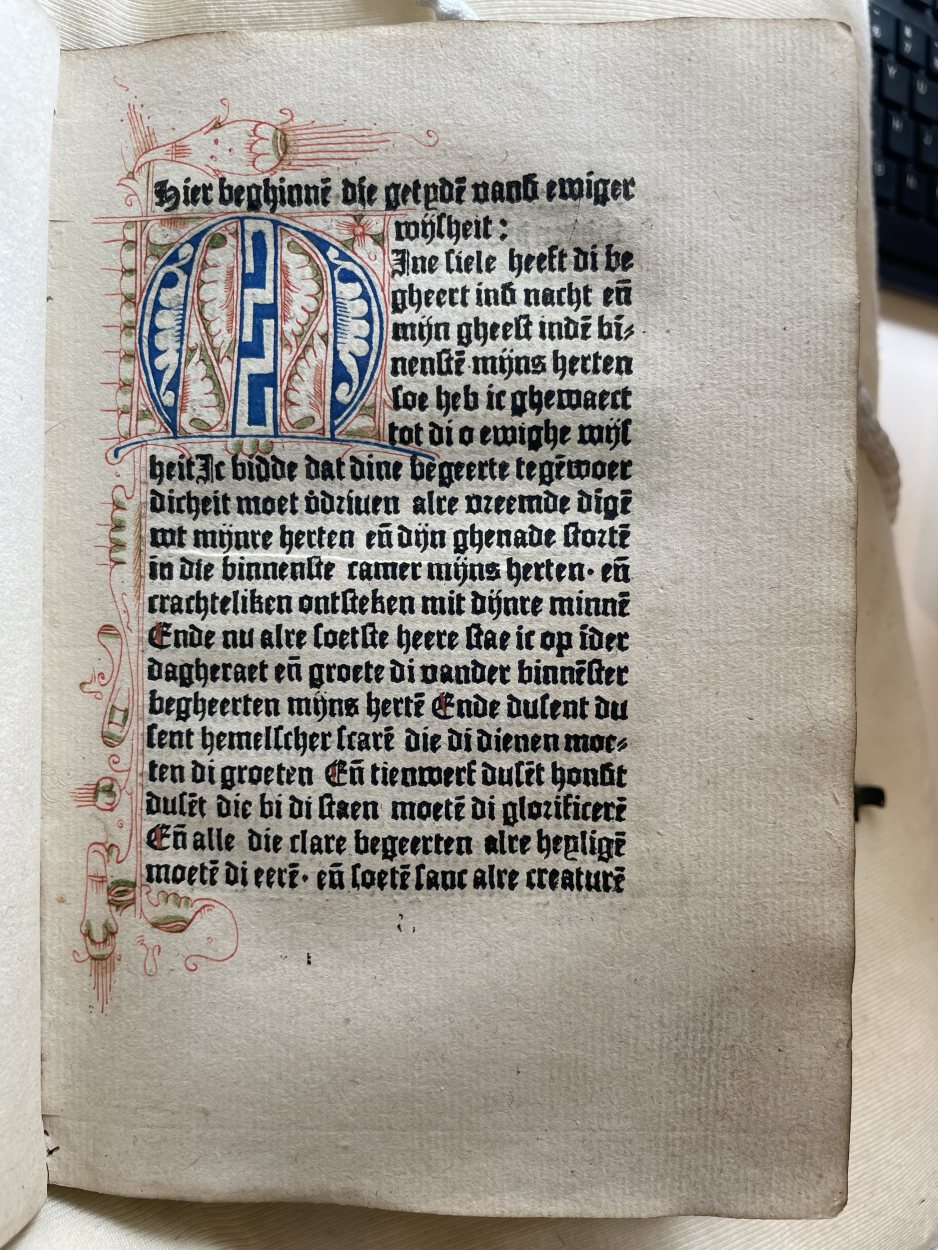 Hier beghinnē die getydē vand ewiger
wijsheit:
MIne siele heeft di be
gheert ind nacht eñ
mijn gheest indē bī⸗
nenstē mijns herten
soe heb ic ghewaect
tot di o ewighe wijs
heit Ic bidde dat dine begeerte tegēwoer
dicheit moet vdriuen alre vreemde dīgē
wt mijnre herten eñ dijn ghenade stortē
in die binnenste camer mijns herten· eñ
crachteliken ontsteken mit dijnre minnē
Ende nu alre soetste heere stae ic op īder
dagheraet eñ groete di vander binnēster
begheerten mijns hertē Ende dusent du
sent hemelscher scarē die di dienen moe⸗
ten di groeten Eñ tienwerf dusēt hondt
dusēt die bi di staen moetē di glorificerē
Eñ alle die clare begeerten alre heyligē
moetē di eerē· eñ soetē sanc alre creaturē